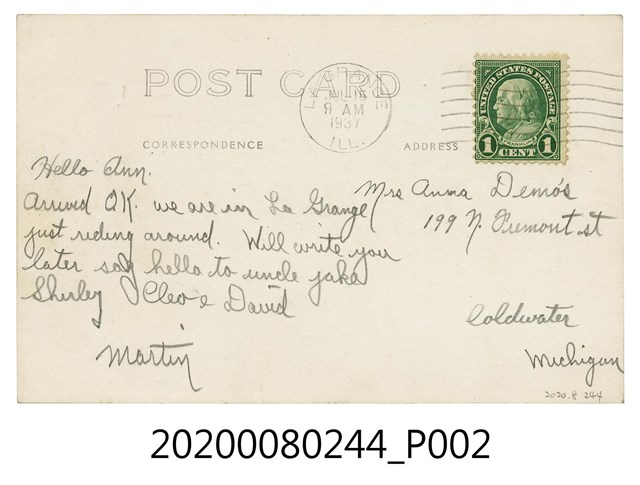 POST CARD
LA GRANGE
9 AM
1937
ILL.
UNITED STATES POSTAGE
FRANKLIN
1 CENT 1
CORRESPONDENCE
ADDRESS
Hello Ann.
Arrived OK. we are in La Grange
just riding around. Will write you
later say hello to uncle jake
Shirley Cleo & David
Martin
Mrs Anna Demos
199 N. Fremont st
Coldwater
Michigan
2020.8.244
20200080244_P002